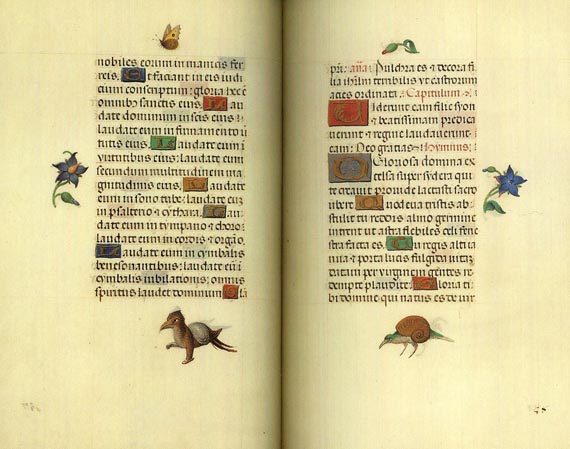 nobiles eorum in manicis fer
reis. Et faciant in eis iudi
cium conscriptum: gloria hec ē
omnibus sanctis eius. Lau
date dominum in scīs eius:
laudate eum in firmamento v̄
tutis eius. Laudate eum i
virtutibus eius: laudate eum
secundum multitudinem ma
gnitudinis eius. Laudate
eum in sono tube: laudate eum
in psalterio et cythara. Lau
date eum in tympano et choro:
laudate eum in cordis et orgāo.
Laudate eum in cymbalis
benesonantibus: laudate eū i
cymbalis iubilationis: omnis
spiritus laudet dominum. Gla
pri: añā. Pulchra es et decora fi
lia ihrlm terribilis vt castrorum
acies ordinata. Capitulum.
Viderunt eam filie syon
et beatissimam predica
uerunt et regine laudauerunt
eam: Deo gratias. Hymnus.
O Gloriosa domina ex
celsa super sydera qui
te creauit prouide lactasti sacro
vbere. Quod eua tristis ab
stulit tu reddis almo germine
intrent vt astra flebiles celi fene
stra facta es. Tu regis alti ia
nua et porta lucis fulgida vitā
datam per virginem gentes re
dempte plaudite. Gloria ti
bi domine qui natus es de vir